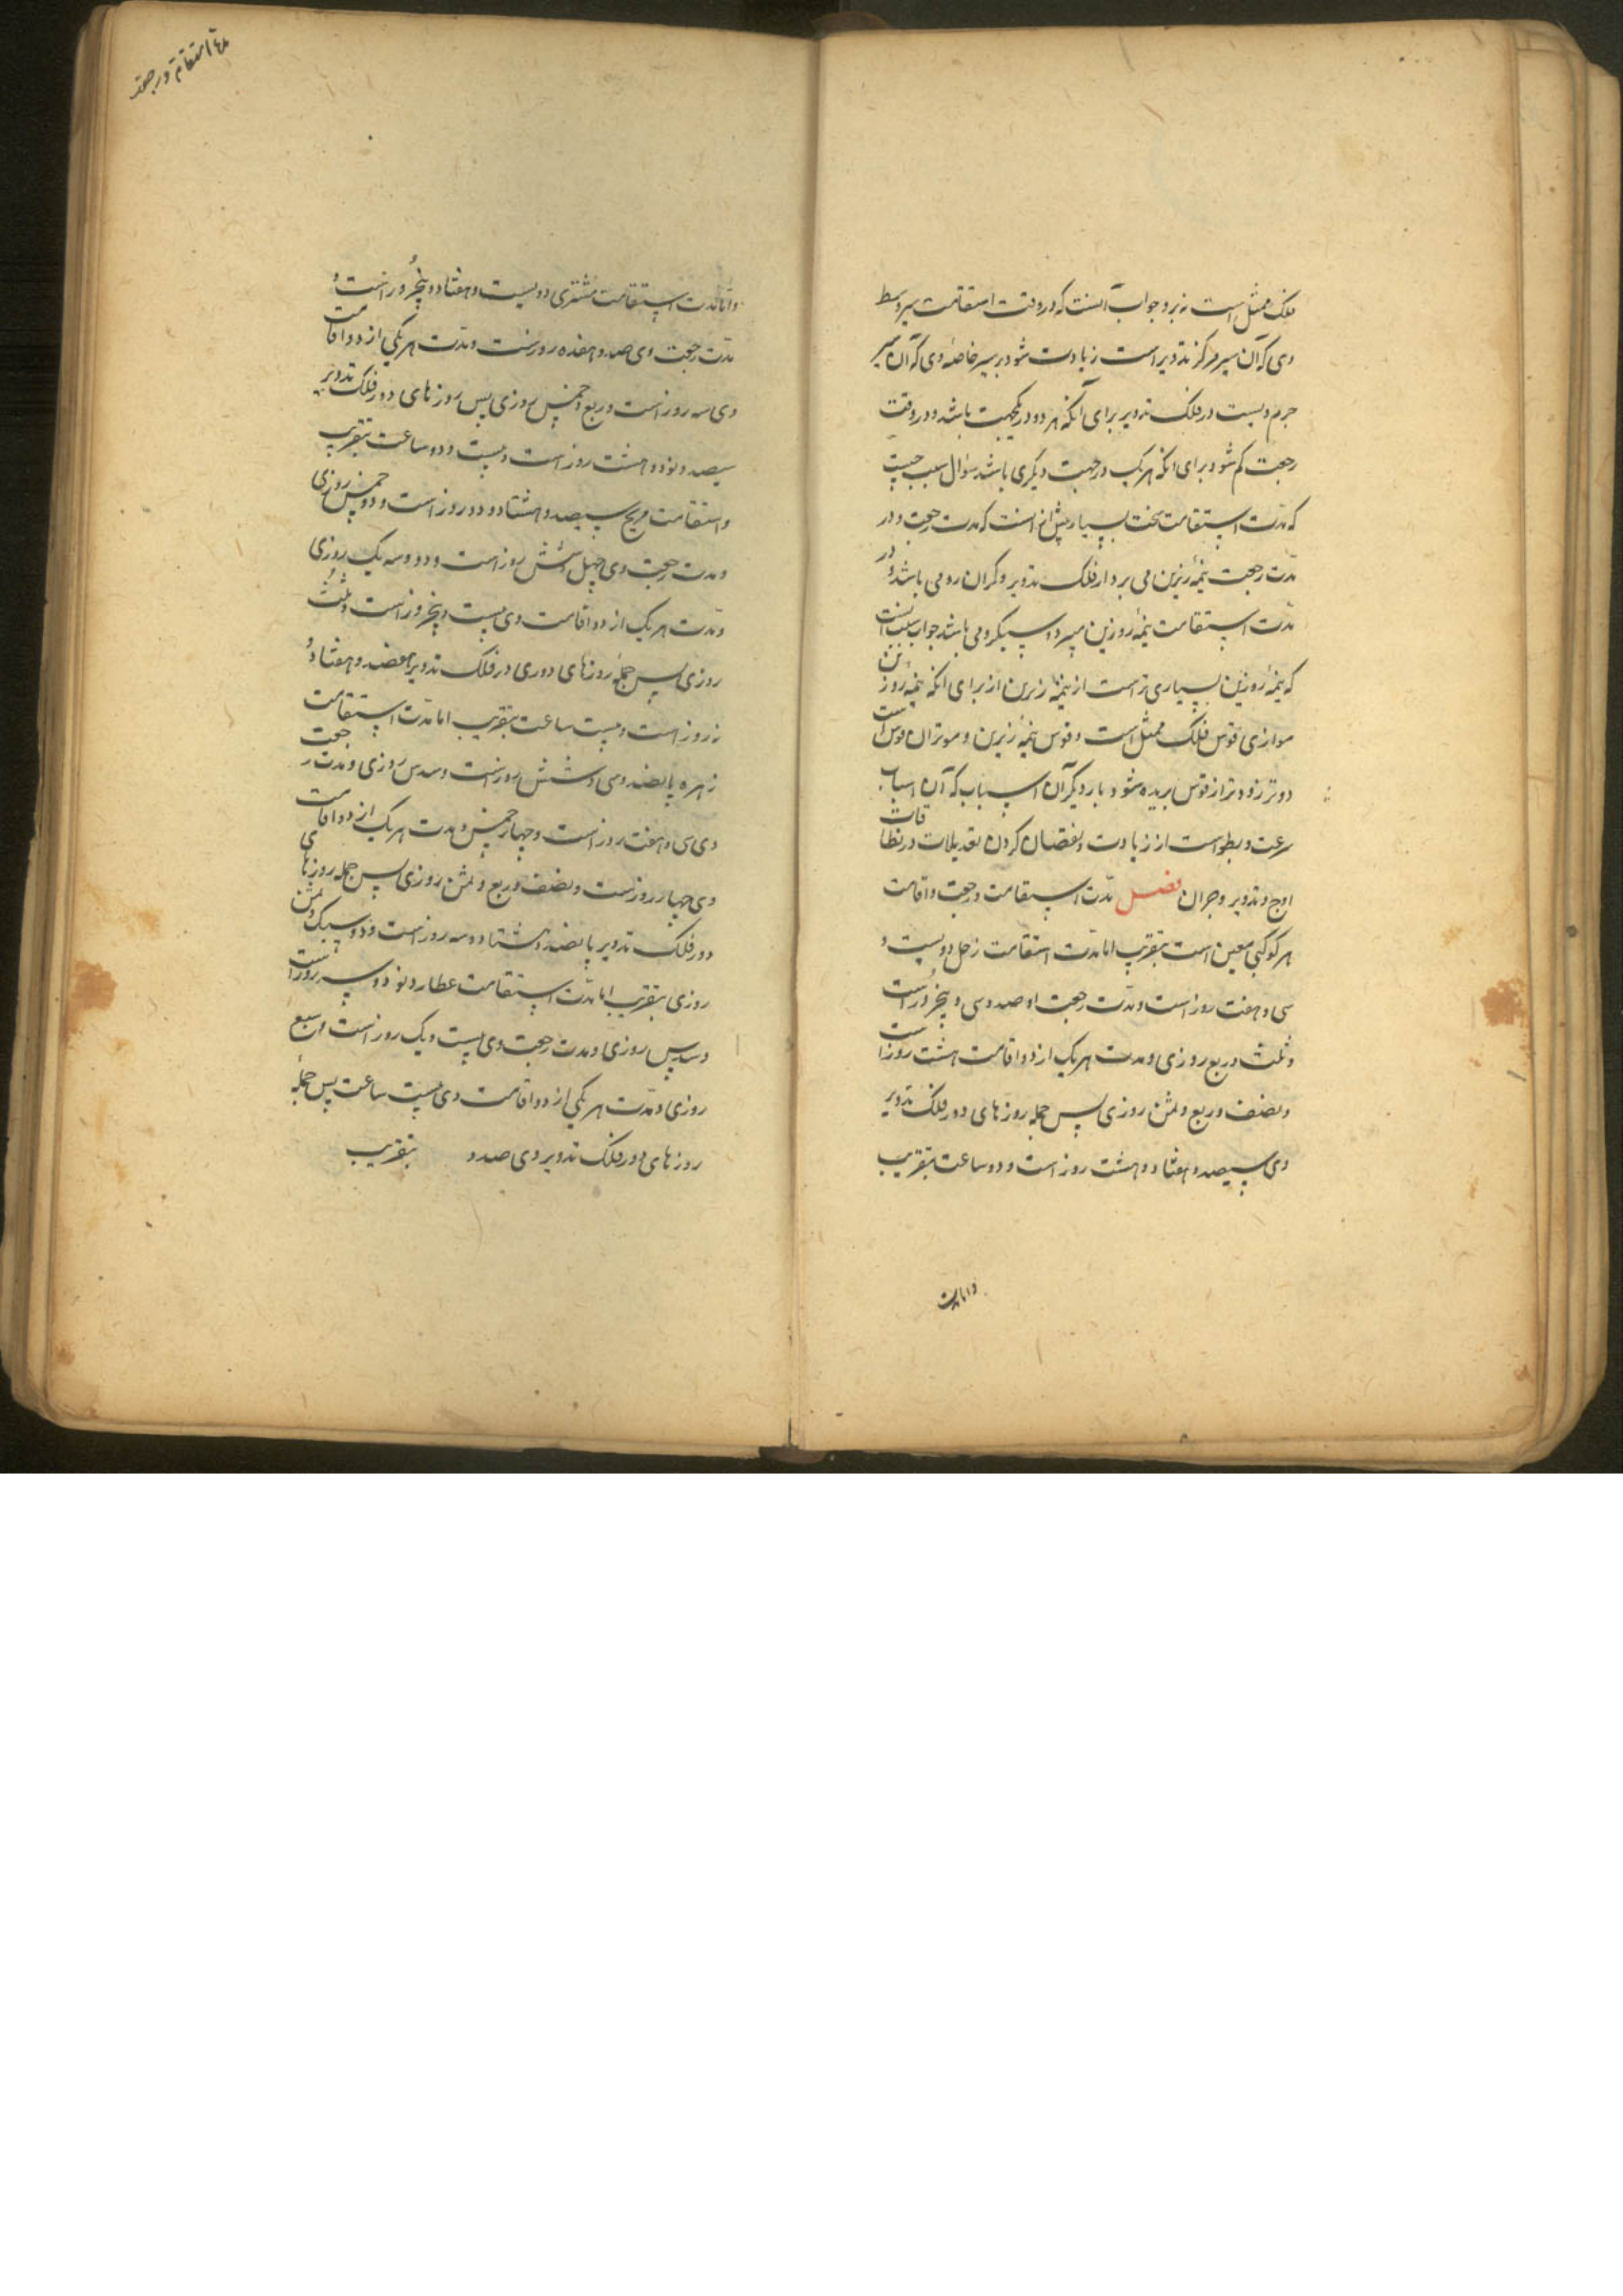 فلک ممثل است نه بر و جواب آنست که در وقت استقامت سیر وسط
وی که آن سیر مرکز تدویر است زیادت شود بر سیر خاصهٔ وی که آن سیر
جرم ویست در فلک تدویر برای آنکه هر دو در یکجهت باشد و در وقت
رجعت کم شود برای انکه هر یک در جهت دیگری باشد سؤال سبب چیست
که مدّت استقامت سخت بسیار بیش از انست که مدت رجعت و در
مدّت رجعت نیمهٔ زیرین می برد از فلک تدویر و گران رو می باشد و در
مدّت استقامت نیمهٔ روزین میبرد و سبکرو می باشد جواب سبب آنست
که نیمهٔ روزین بسیاری تراست از نیمهٔ زیرین از برای انکه نیمهٔ روزین
موازی قوس فلک ممثل است و قوس نیمهٔ زیرین و موتران قوس است
و وتر زودتر از قوس بریده شود بار دیگر آن اسباب که آن اسباب
سرعت و بطواست از زیادت و نقصان کردن تعدیلات در نطاقات
اوج و تدویر و جز آن فصل مدّت استقامت و رجعت و اقامت
هر کوکبی معین است بتقریب اما مدّت استقامت زحل دویست و
سی و هفت روز است و مدّت رجعت او صد و سی و پنج روز است
و ثلث و ربع روزی و مدت هر یک از دو اقامت هشت روز است
و نصف و ربع و ثمن روزی پس جمله روزهای دور فلک تدویر
وی سیصد و هفتاد و هشت روز است و دو ساعت بتقریب
و اما مدت
۱۴۸ استقامة و رجعة
و امّا مدّت استقامت مشتری دویست و هفتاد و پنج روز است و
مدّت رجعت وی صد و هفده روزست و مدّت هر یکی از دو اقامت
وی سه روز است و ربع و خمس روزی پس روزهای دور فلک تدویر
سیصد و نود و هشت روز است و بیست و دو ساعت بتقریب
و استقامت مریخ سیصد و هشتاد و دو روز است و دو خمس روزی
و مدت رجعت وی چهل و شش روز است و دو و سه یک روزی
و مدّت هر یک از دو اقامت وی بیست و پنج روز است و ثلث
روزی پس جملهٔ روزهای دوری در فلک تدویر هفصد و هفتاد و
نه روز است و بیست ساعت بتقریب اما مدّت استقامت
زهره پانصد و سی و شش روزست و سدس روزی و مدّت رجعت
وی سی و هفت روز است و چهار خمس و مدت هر یک از دو اقامت
وی چهار روزست و نصف و ربع و ثمن روزی پس جمله روزهای
دور فلک تدویر پانصد و هشتاد و سه روز است و دو سیک و ثمن
روزی بتقریب اما مدّت استقامت عطارد نود و سه روز است
و سدس روزی و مدت رجعت وی بیست و یک روز است و سبع
روزی و مدّت هر یکی از دو اقامت وی بیست ساعت پس جملهٔ
روزهای دور فلک تدویر وی صد و بتقریب